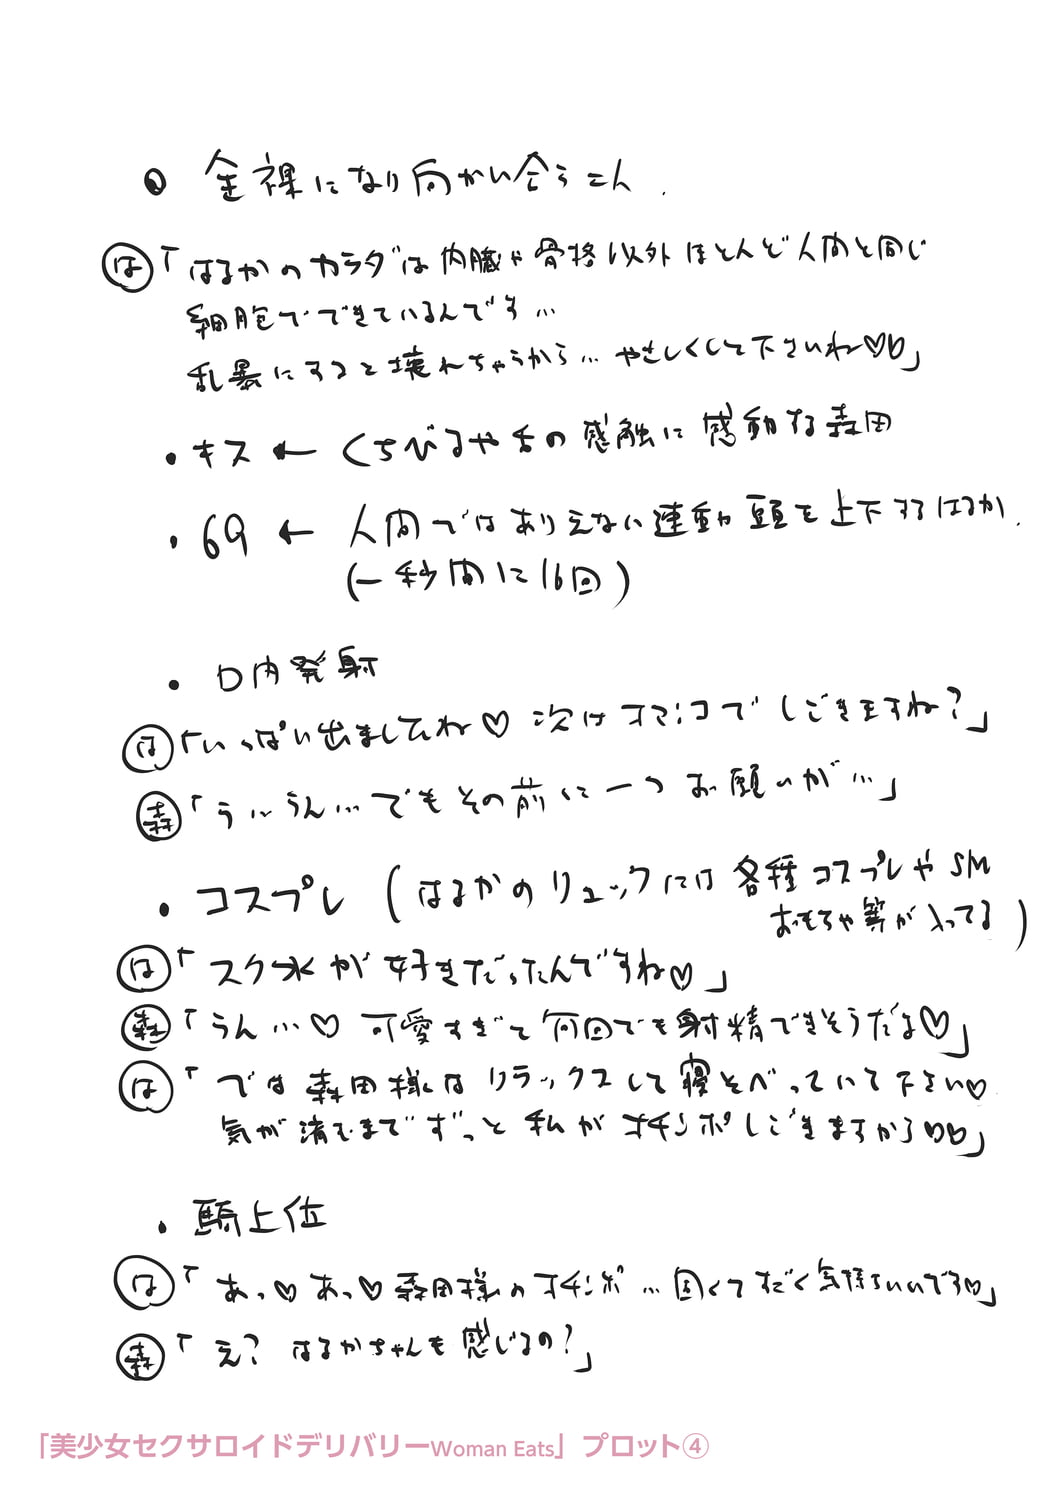 ● 全裸になり向かい合う二人.
は「はるかのカラダは内臓や骨格以外ほとんど人間と同じ
細胞でできているんです…
乱暴にすると壊れちゃうから…やさしくして下さいね♡♡」
・キス ← くちびるや舌の感触に感動する森田
・69 ← 人間ではありえない連動 頭を上下するはるか.
(一秒間に16回)
・口内発射
は「いっぱい出ましたね♡ 次はオマンコでしごきますね?」
森「う…うん…でもその前に一つお願いが…」
・コスプレ (はるかのリュックには各種コスプレやSM
おもちゃ等が入ってる)
は「スク水が好きだったんですね♡」
森「うん…♡ 可愛すぎて何回でも射精できそうだよ♡」
は「では森田様はリラックスして寝そべっていて下さい♡
気が済むまでずっと私がオチンポしごきますから♡♡」
・騎上位
は「あっ♡あっ♡森田様のオチンポ…固くてすごく気持ちいいです♡」
森「え? はるかちゃんも感じるの?」
「美少女セクサロイドデリバリーWoman Eats」プロット④